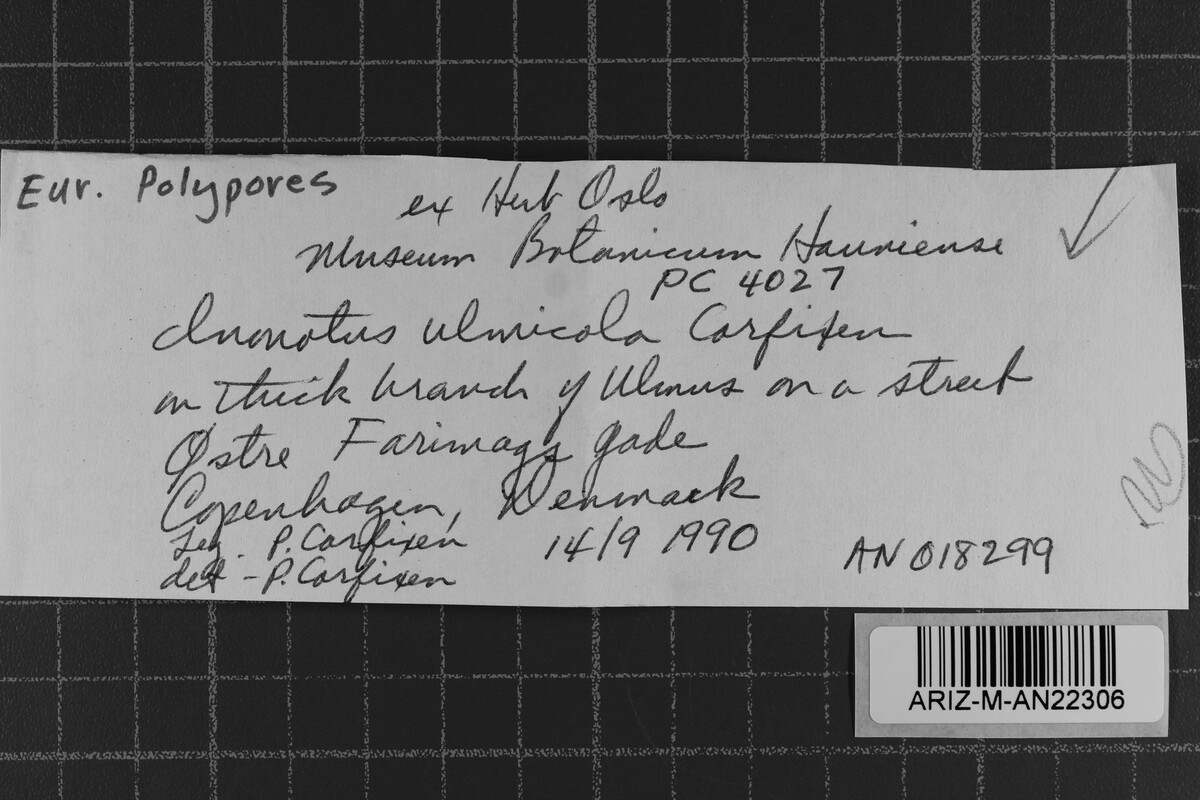 Eur. Polypores
ex Herb Oslo
Museum Botanicum Hauniense
PC 4027
Inonotus ulmicola Corfixen
on thick branch of Ulmus on a street
Østre Farimags gade
Copenhagen, Denmark
Leg. P. Corfixen 14/9 1990
det - P. Corfixen
AN 018299
ARIZ-M-AN22306